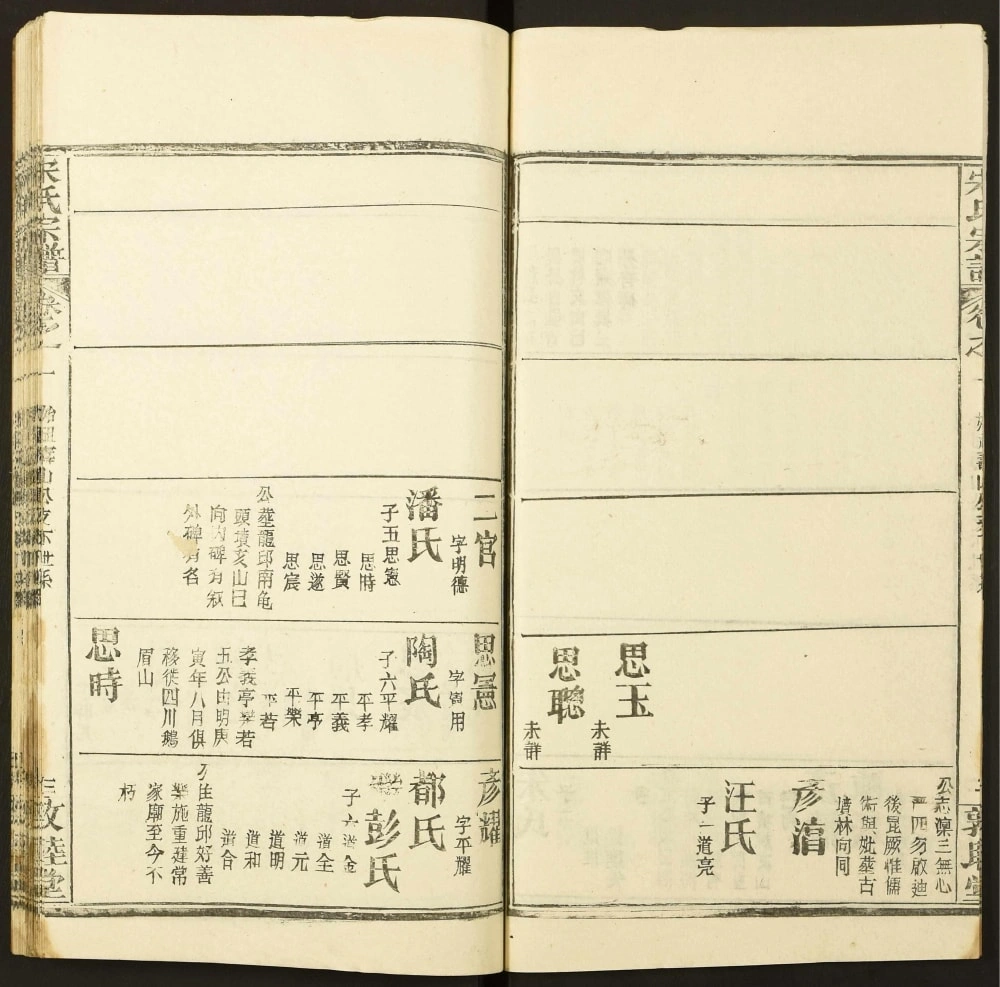 宋氏宗譜
卷之一
思玉
未詳
思聰
未詳
公志凜三無心
嚴四勿啟迪
後昆厥惟儒
術與妣塟古
墳林向同
彥湻
汪氏
子一道亮
敦睦堂
二官
字明德
潘氏
子五思憲
思時
思賢
思遂
思宸
公塟龍邱南龜
頭墳亥山巳
向內碑有叙
外碑有名
思憲
字寅用
陶氏
子六平耀
平孝
平義
平亭
平榮
平若
孝義亭榮若
五公由明庚
寅年八月俱
移徙四川鵝
眉山
思時
彥耀
字平耀
都氏
彭氏
子六道金
道全
道元
道明
道和
道合
公住龍邱好善
樂施重建常
家廟至今不
朽
宋氏宗譜
卷之一
敦睦堂